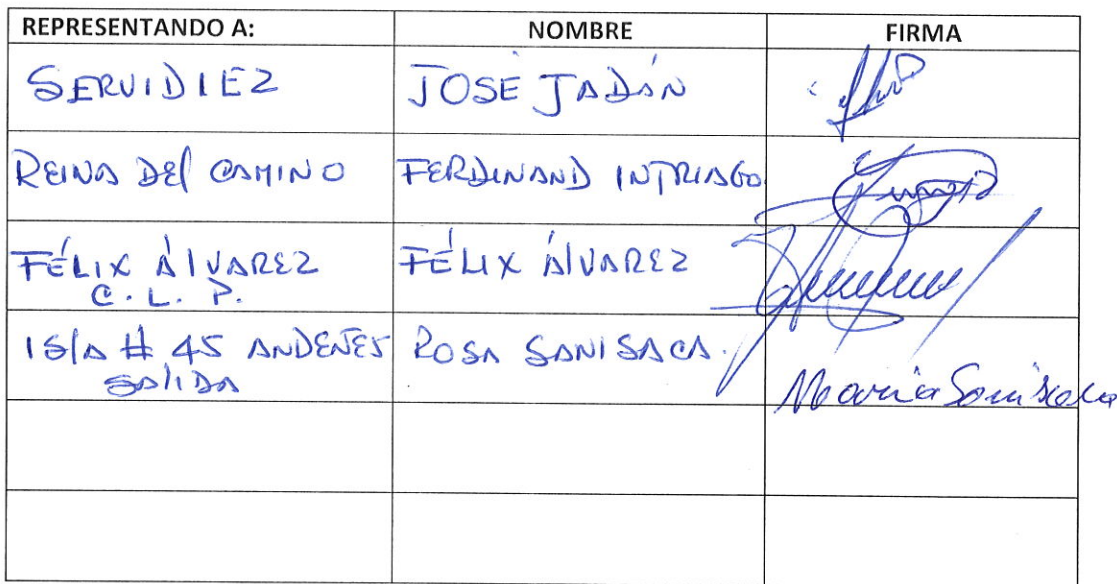 REPRESENTANDO A: NOMBRE FIRMA
SERVIDIEZ JOSÉ JADÁN
REINA DEl CAMINO FERDINAND INTRIAGO
FÉLIX ÁlVAREZ FÉLIX ÁlVAREZ
C. L. P.
ISlA # 45 ANDENES ROSA SANISACA.
SAlIDA
Maria Sanisaca